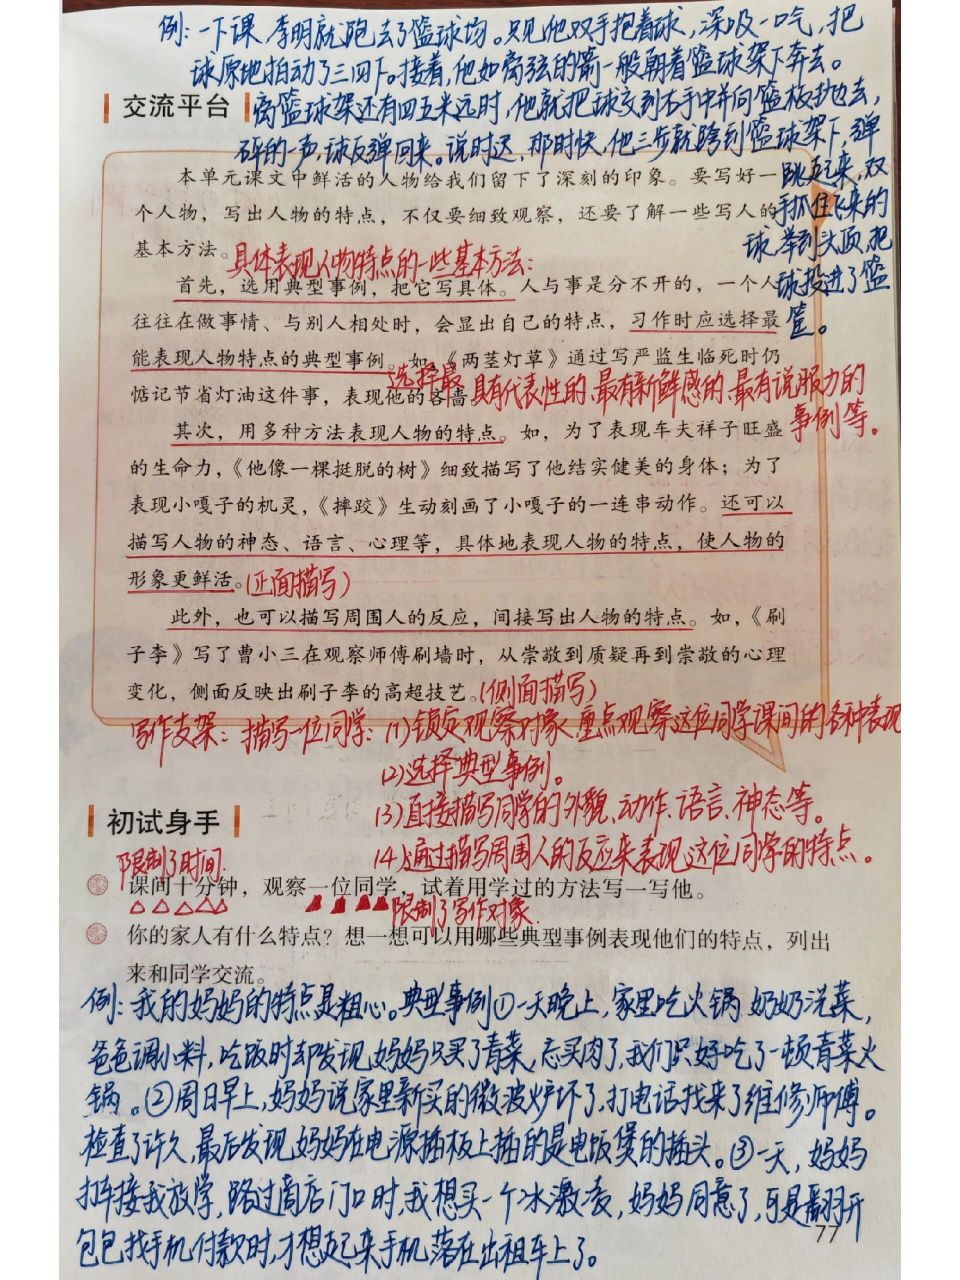 例:一下课,李明就跑去了篮球场。只见他双手抱着球,深吸一口气,把
球原地拍动了三四下。接着,他如离弦的箭一般朝着篮球架下奔去。
交流平台
离篮球架还有四五米远时,他就把球交到右手中并向篮板抛去,
砰的一声,球反弹回来。说时迟,那时快,他三步就跨到篮球架下,弹
跳起来,双
手抓住飞来的
球,举到头顶,把
球投进了篮
筐。
本单元课文中鲜活的人物给我们留下了深刻的印象。要写好一
个人物,写出人物的特点,不仅要细致观察,还要了解一些写人的
基本方法。
具体表现人物特点的一些基本方法:
首先,选用典型事例,把它写具体。人与事是分不开的,一个人
往往在做事情、与别人相处时,会显出自己的特点,习作时应选择最
能表现人物特点的典型事例。如,《两茎灯草》通过写严监生临死时仍
惦记节省灯油这件事,表现他的吝啬。
选择最具有代表性的、最有新鲜感的、最有说服力的
事例等。
其次,用多种方法表现人物的特点。如,为了表现车夫祥子旺盛
的生命力,《他像一棵挺脱的树》细致描写了他结实健美的身体;为了
表现小嘎子的机灵,《摔跤》生动刻画了小嘎子的一连串动作。还可以
描写人物的神态、语言、心理等,具体地表现人物的特点,使人物的
形象更鲜活。(正面描写)
此外,也可以描写周围人的反应,间接写出人物的特点。如,《刷
子李》写了曹小三在观察师傅刷墙时,从崇敬到质疑再到崇敬的心理
变化,侧面反映出刷子李的高超技艺。(侧面描写)
写作支架:描写一位同学:(1)锁定观察对象,重点观察这位同学课间的各种表现
(2)选择典型事例。
(3)直接描写同学的外貌、动作、语言、神态等。
初试身手
(4)通过描写周围人的反应来表现这位同学的特点。
限制了时间.
课间十分钟,观察一位同学,试着用学过的方法写一写他。
限制了写作对象.
你的家人有什么特点?想一想可以用哪些典型事例表现他们的特点,列出
来和同学交流。
例:我的妈妈的特点是粗心。典型事例①一天晚上,家里吃火锅,奶奶洗菜,
爸爸调小料,吃饭时却发现妈妈只买了青菜,忘买肉了,我们只好吃了一顿青菜火
锅。②周日早上,妈妈说家里新买的微波炉坏了,打电话找来了维修师傅。
检查了许久,最后发现妈妈在电源插板上插的是电饭煲的插头。③一天,妈妈
打车接我放学,路过商店门口时,我想买一个冰激凌,妈妈同意了,可是翻开
包包找手机付款时,才想起来手机落在出租车上了。
77